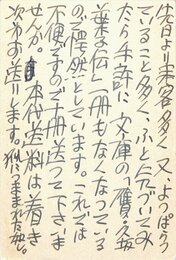 先日より来客多く、又、よっぱらっ
ていること多く、ふと気づいてみ
たら手許に文庫の贋久坂
葉子伝一冊もなくなっている
ので愕然としています。これでは
不便ですので十冊送って下さいま
せんか。本代送料は着き
次第お送りします。狐につままれたか。